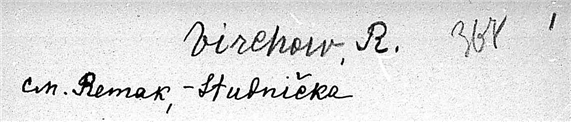 Virchow, R. 368
см. Remak, - Studnička